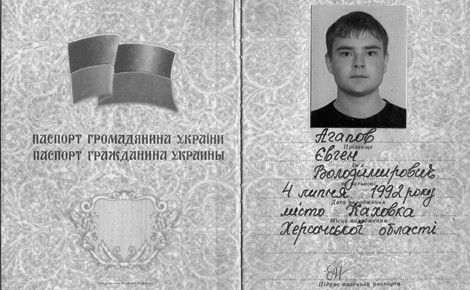 ПАСПОРТ ГРОМАДЯНИНА УКРАЇНИ
ПАСПОРТ ГРАЖДАНИНА УКРАИНЫ
Агапов
Прізвище
Євген
Ім'я
Володимирович
По батькові
4 липня 1992 року
Дата народження
місто Каховка
Місце народження
Херсонської області
Підпис власника паспорта